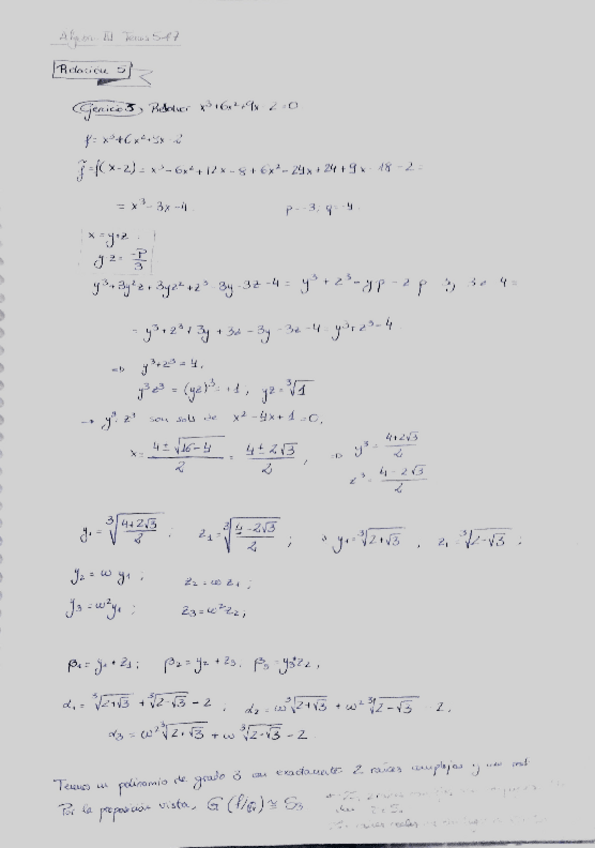 Relación 5
Ejercicio 3, Resolver x³+6x²+9x-2=0
f= x³+6x²+9x-2
f̃=f(x-2)= x³-6x²+12x-8+6x²-24x+24+9x-18-2=
= x³-3x-4. p=-3; q=-4.
x=y+z.
yz= -p/3
y³+3y²z+3yz²+z³-3y-3z-4= y³+z³-yp-zp-3y-3z-4=
= y³+z³+3y+3z-3y-3z-4= y³+z³-4.
⇒ y³+z³=4.
y³z³=(yz)³=+1, yz=∛1
→ y³, z³ son sols de x²-4x+1=0.
x= (4±√(16-4))/2 = (4±2√3)/2, ⇒ y³= (4+2√3)/2
z³= (4-2√3)/2
y₁=∛((4+2√3)/2); z₁=∛((4-2√3)/2); y₁=∛(2+√3), z₁=∛(2-√3);
y₂=ω y₁; z₂=ω z₁;
y₃=ω²y₁; z₃=ω²z₂;
β₁=y₁+z₁; β₂=y₂+z₃. β₃=y₃+z₂,
α₁=∛(2+√3)+∛(2-√3)-2; α₂=ω∛(2+√3)+ω²∛(2-√3)-2.
α₃=ω²∛(2+√3)+ω∛(2-√3)-2.
Tenemos un polinomio de grado 3 con exactamente 2 raíces complejas y una real
Por la proposición vista, G(f/ℚ)≅S₃